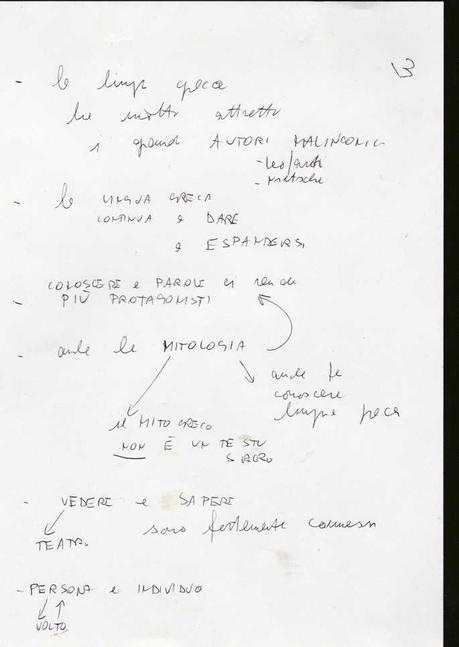 13
- la lingua greca
ha molto attratto
i grandi AUTORI MALINCONICI
- Leopardi
- Nietsche
- la LINGUA GRECA
CONTINUA a DARE
a ESPANDERSI
- CONOSCERE e PAROLE ci rende
PIÙ PROTAGONISTI
- anche la MITOLOGIA
anche fa
conoscere
lingua greca
il MITO GRECO
NON È UN TESTO
SACRO
- VEDERE e SAPERE
sono fortemente connessi
TEATRO
- PERSONA e INDIVIDUO
VOLTO